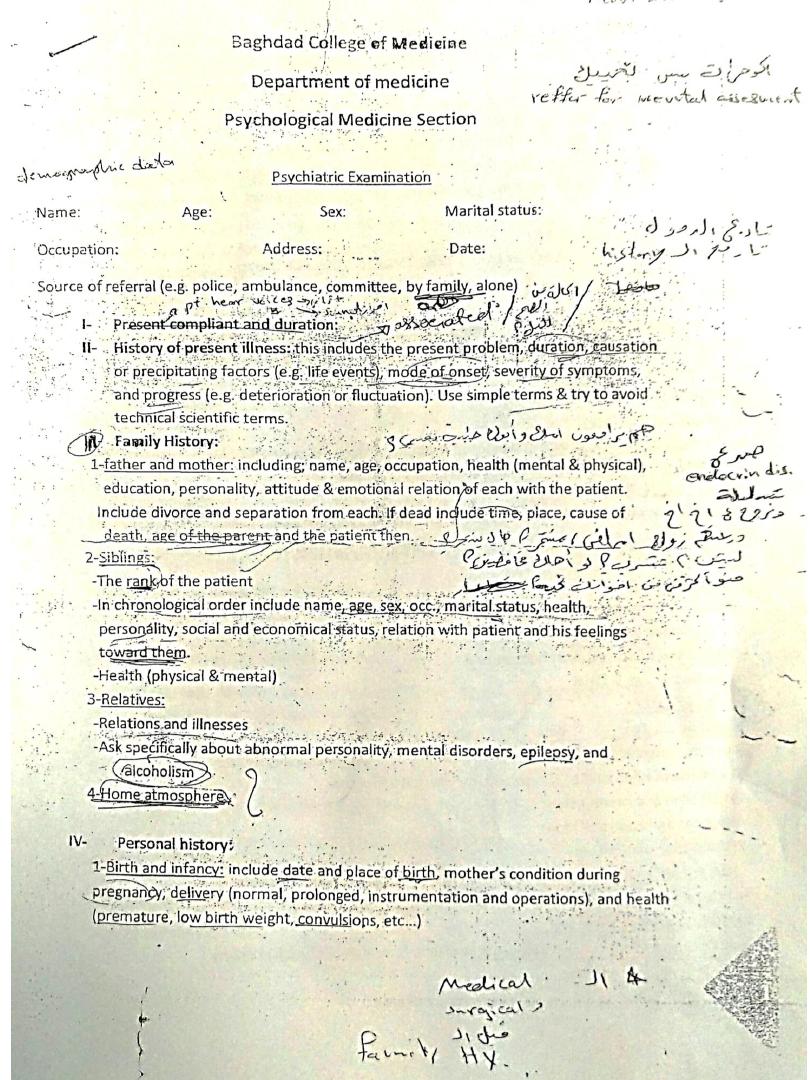 Baghdad College of Medicine
Department of medicine
reffer for mental assesment
Psychological Medicine Section
demographic data
Psychiatric Examination
Name: Age: Sex: Marital status:
Occupation: Address: Date:
تاريخ ال history
Source of referral (e.g. police, ambulance, committee, by family, alone)
pt. hear voices
I- Present compliant and duration: associated
II- History of present illness: this includes the present problem, duration, causation
or precipitating factors (e.g. life events), mode of onset, severity of symptoms,
and progress (e.g. deterioration or fluctuation). Use simple terms & try to avoid
technical scientific terms.
III Family History:
صرع
1-father and mother: including; name, age, occupation, health (mental & physical),
endocrin dis.
education, personality, attitude & emotional relation of each with the patient.
Include divorce and separation from each. If dead include time, place, cause of
death, age of the parent and the patient then.
2-Siblings:
-The rank of the patient
-In chronological order include name, age, sex, occ., marital status, health,
personality, social and economical status, relation with patient and his feelings
toward them.
-Health (physical & mental)
3-Relatives:
-Relations and illnesses
-Ask specifically about abnormal personality, mental disorders, epilepsy, and
alcoholism
4-Home atmosphere
IV- Personal history:
1-Birth and infancy: include date and place of birth, mother's condition during
pregnancy, delivery (normal, prolonged, instrumentation and operations), and health
(premature, low birth weight, convulsions, etc...)
ال Medical
و surgical
قبل ال
family HX.